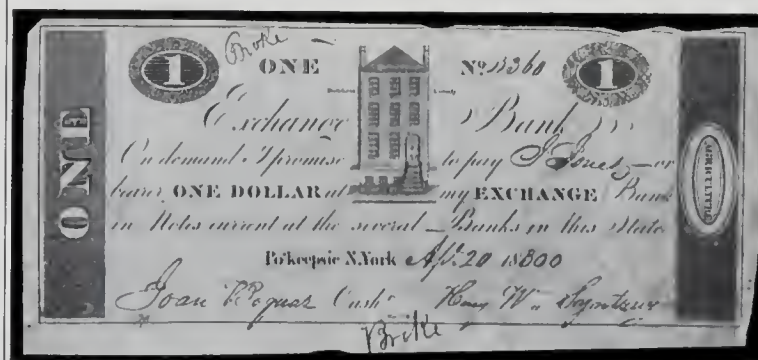 Broke
1 ONE Nº 1
Dutchess County
Exchange Bank
On demand I promise to pay J Jones or
bearer ONE DOLLAR at my EXCHANGE Bank
in Notes current at the several Banks in this State
Po'keepsie N.York Apl. 20 1800
Cashr W.
ONE
AGRICULTURE